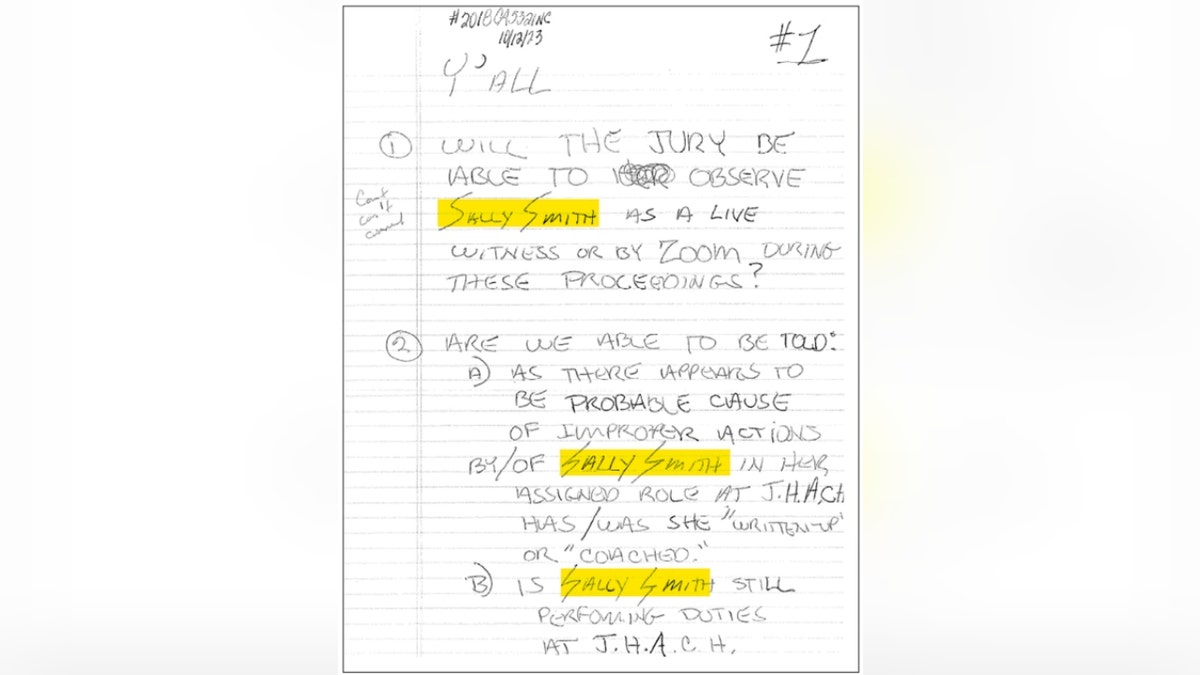 #2018CA5321NC
10/12/23
#1
Y'ALL
① WILL THE JURY BE
ABLE TO OBSERVE
SALLY SMITH AS A LIVE
WITNESS OR BY ZOOM DURING
THESE PROCEEDINGS?
② ARE WE ABLE TO BE TOLD:
A) AS THERE APPEARS TO
BE PROBABLE CAUSE
OF IMPROPER ACTIONS
BY/OF SALLY SMITH IN HER
ASSIGNED ROLE AT J.H.A.C.H
HAS/WAS SHE "WRITTEN-UP"
OR "COACHED."
B) IS SALLY SMITH STILL
PERFOMING DUTIES
AT J.H.A.C.H.